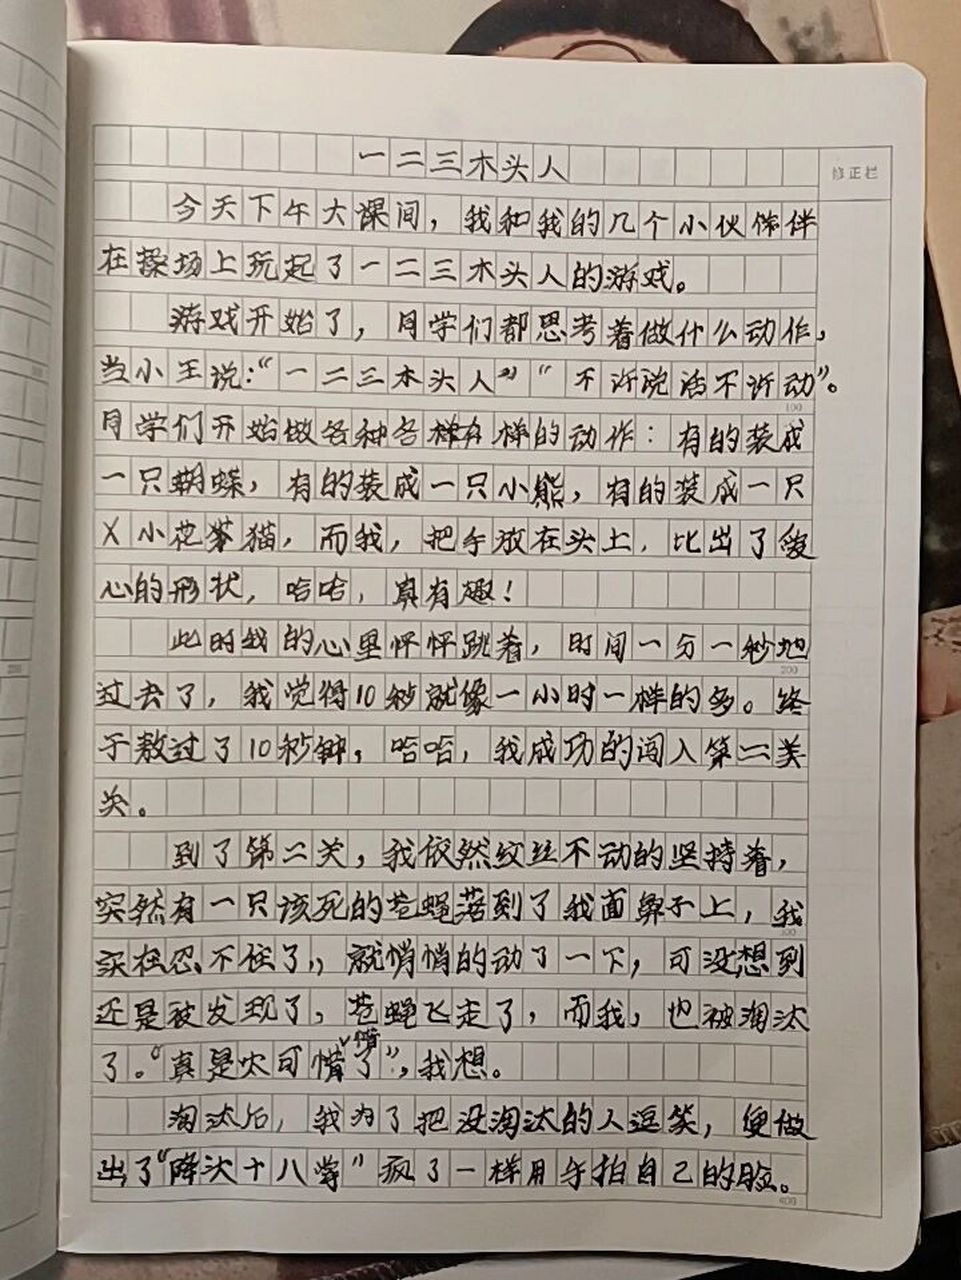 一二三木头人
修正栏
今天下午大课间，我和我的几个小伙伴
在操场上玩起了一二三木头人的游戏。
游戏开始了，同学们都思考着做什么动作，
当小王说：“一二三木头人”“不许说话不许动”。
100
同学们开始做各种各样的动作：有的装成
一只蝴蝶，有的装成一只小熊，有的装成一只
小花猫，而我，把手放在头上，比出了爱
心的形状，哈哈，真有趣！
此时我的心里怦怦跳着，时间一分一秒地
200
过去了，我觉得10秒就像一小时一样的多。终
于熬过了10秒钟，哈哈，我成功的闯入第二关
关。
到了第二关，我依然纹丝不动的坚持着，
突然有一只该死的苍蝇落到了我面鼻子上，我
300
实在忍不住了，就悄悄的动了一下，可没想到
还是被发现了，苍蝇飞走了，而我，也被淘汰
了。“真是太可惜了”，我想。
淘汰后，我为了把没淘汰的人逗笑，便做
出了“降汰十八掌”疯了一样用手拍自己的脸。
400